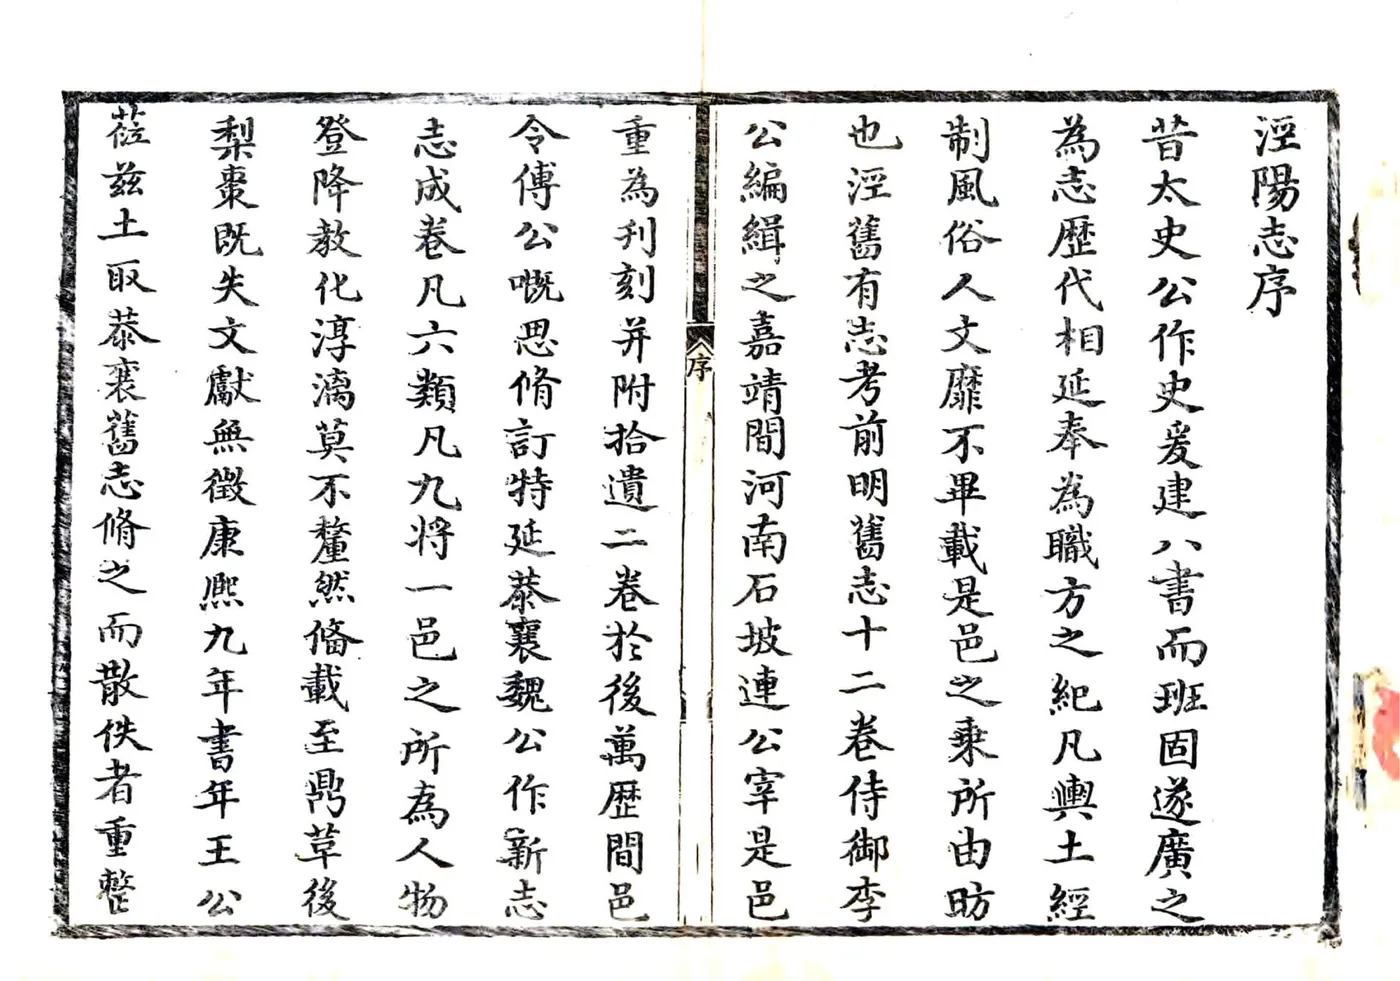 涇陽志序
昔太史公作史爰建八書而班固遂廣之
為志歷代相延奉為職方之紀凡輿土經
制風俗人文靡不畢載是邑之乗所由昉
也涇舊有志考前明舊志十二卷侍御李
公編緝之嘉靖間河南石坡連公宰是邑
序
重為刋刻并附拾遺二卷於後萬歷間邑
令傅公嘅思脩訂特延恭襄魏公作新志
志成卷凡六類凡九将一邑之所為人物
登降教化淳漓莫不釐然俻載至鼎草後
梨棗既失文獻無徵康熙九年書年王公
蒞兹土取恭襄舊志脩之而散佚者重整